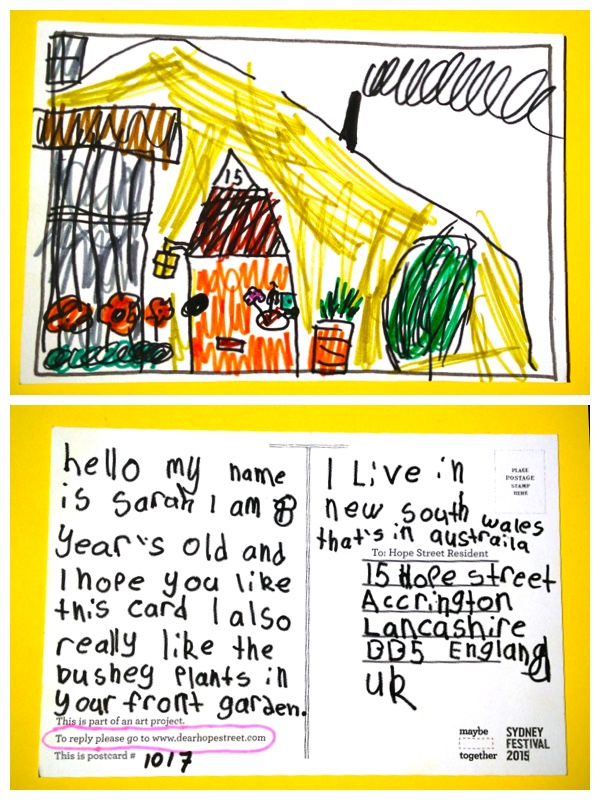 15
hello my name
is Sarah I am 8
year's old and
I hope you like
this card I also
really like the
bushey plants in
your front garden.
This is part of an art project.
To reply please go to www.dearhopestreet.com
This is postcard # 1017
I Live in
new south wales
that's in austraila
PLACE
POSTAGE
STAMP
HERE
To: Hope Street Resident
15 Hope street
Accrington
Lancashire
BB5 England
UK
maybe
together
SYDNEY
FESTIVAL
2015